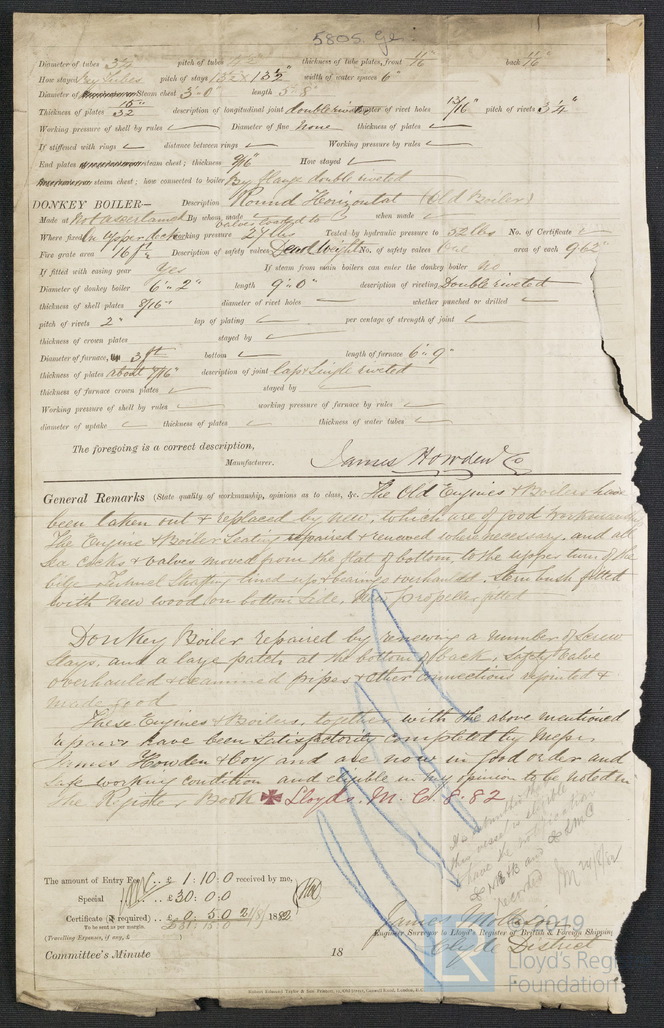 5805 Gls
Diameter of tubes 3¼" pitch of tubes thickness of tube plates, front 11/16" back 11/16"
How stayed By tubes pitch of stays 13½" x 13½" width of water spaces 6"
Diameter of Steam chest 3'-0" length 5'-8"
Thickness of plates 15/32" description of longitudinal joint double riveted diameter of rivet holes 13/16" pitch of rivets 3¼"
Working pressure of shell by rules Diameter of flue None thickness of plates
If stiffened with rings distance between rings Working pressure by rules
End plates of steam chest; thickness 9/16" How stayed
steam chest; how connected to boiler By flange double riveted
DONKEY BOILER— Description Round Horizontal (Old Boiler)
Made at Not ascertained By whom made when made
valves loaded to
Where fixed In Upper deck working pressure 27 lbs Tested by hydraulic pressure to 52 lbs No. of Certificate
Fire grate area 16 ft² Description of safety valves Dead Weight No. of safety valves One area of each 9.62"
If fitted with easing gear Yes If steam from main boilers can enter the donkey boiler No
Diameter of donkey boiler 6'-2" length 9'-0" description of riveting Double riveted
thickness of shell plates 8/16" diameter of rivet holes whether punched or drilled
pitch of rivets 2" lap of plating per centage of strength of joint
thickness of crown plates stayed by
Diameter of furnace, 3 ft bottom length of furnace 6'-9"
thickness of plates about 7/16" description of joint lap & single riveted
thickness of furnace crown plates stayed by
Working pressure of shell by rules working pressure of furnace by rules
diameter of uptake thickness of plates thickness of water tubes
The foregoing is a correct description,
Manufacturer. James Howden & Co
General Remarks (State quality of workmanship, opinions as to class, &c. The Old Engines & Boilers have
been taken out & replaced by new, which are of good workmanship
The Engine & Boiler Seating repaired & renewed where necessary, and all
sea cocks & valves moved from the flat of bottom, to the upper turn of the
bilge Tunnel Shafting lined up & bearings overhauled. Stern bush fitted
with new wood on bottom side, New propeller fitted
Donkey Boiler repaired by renewing a number of Screw
Stays, and a large patch at the bottom of back, Safety Valve
overhauled & examined pipes & other connections rejointed &
made good
These Engines & Boilers, together with the above mentioned
repairs have been satisfactorily completed by Messrs
James Howden & Coy and are now in good order and
safe working condition and eligible in my opinion to be noted in
The Register Book ✠ Lloyds. M. C. 8.82
It is submitted that
this vessel is eligible
to have the notification
recorded
The amount of Entry Fee .. £ 1 : 10 : 0 received by me,
Special .. £ 30 : 0 : 0
Certificate (if required) .. £ 0 : 5 : 0 21/8/1882
To be sent as per margin. £31 : 15 : 0
(Travelling Expenses, if any, £ )
Committee's Minute 18
James Mollison
Engineer Surveyor to Lloyd's Register of British & Foreign Shipping
Clyde District
2019
LR
Lloyd's Regi
Foundation